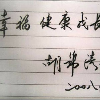 幸福 健康成长
胡锦涛
二00八